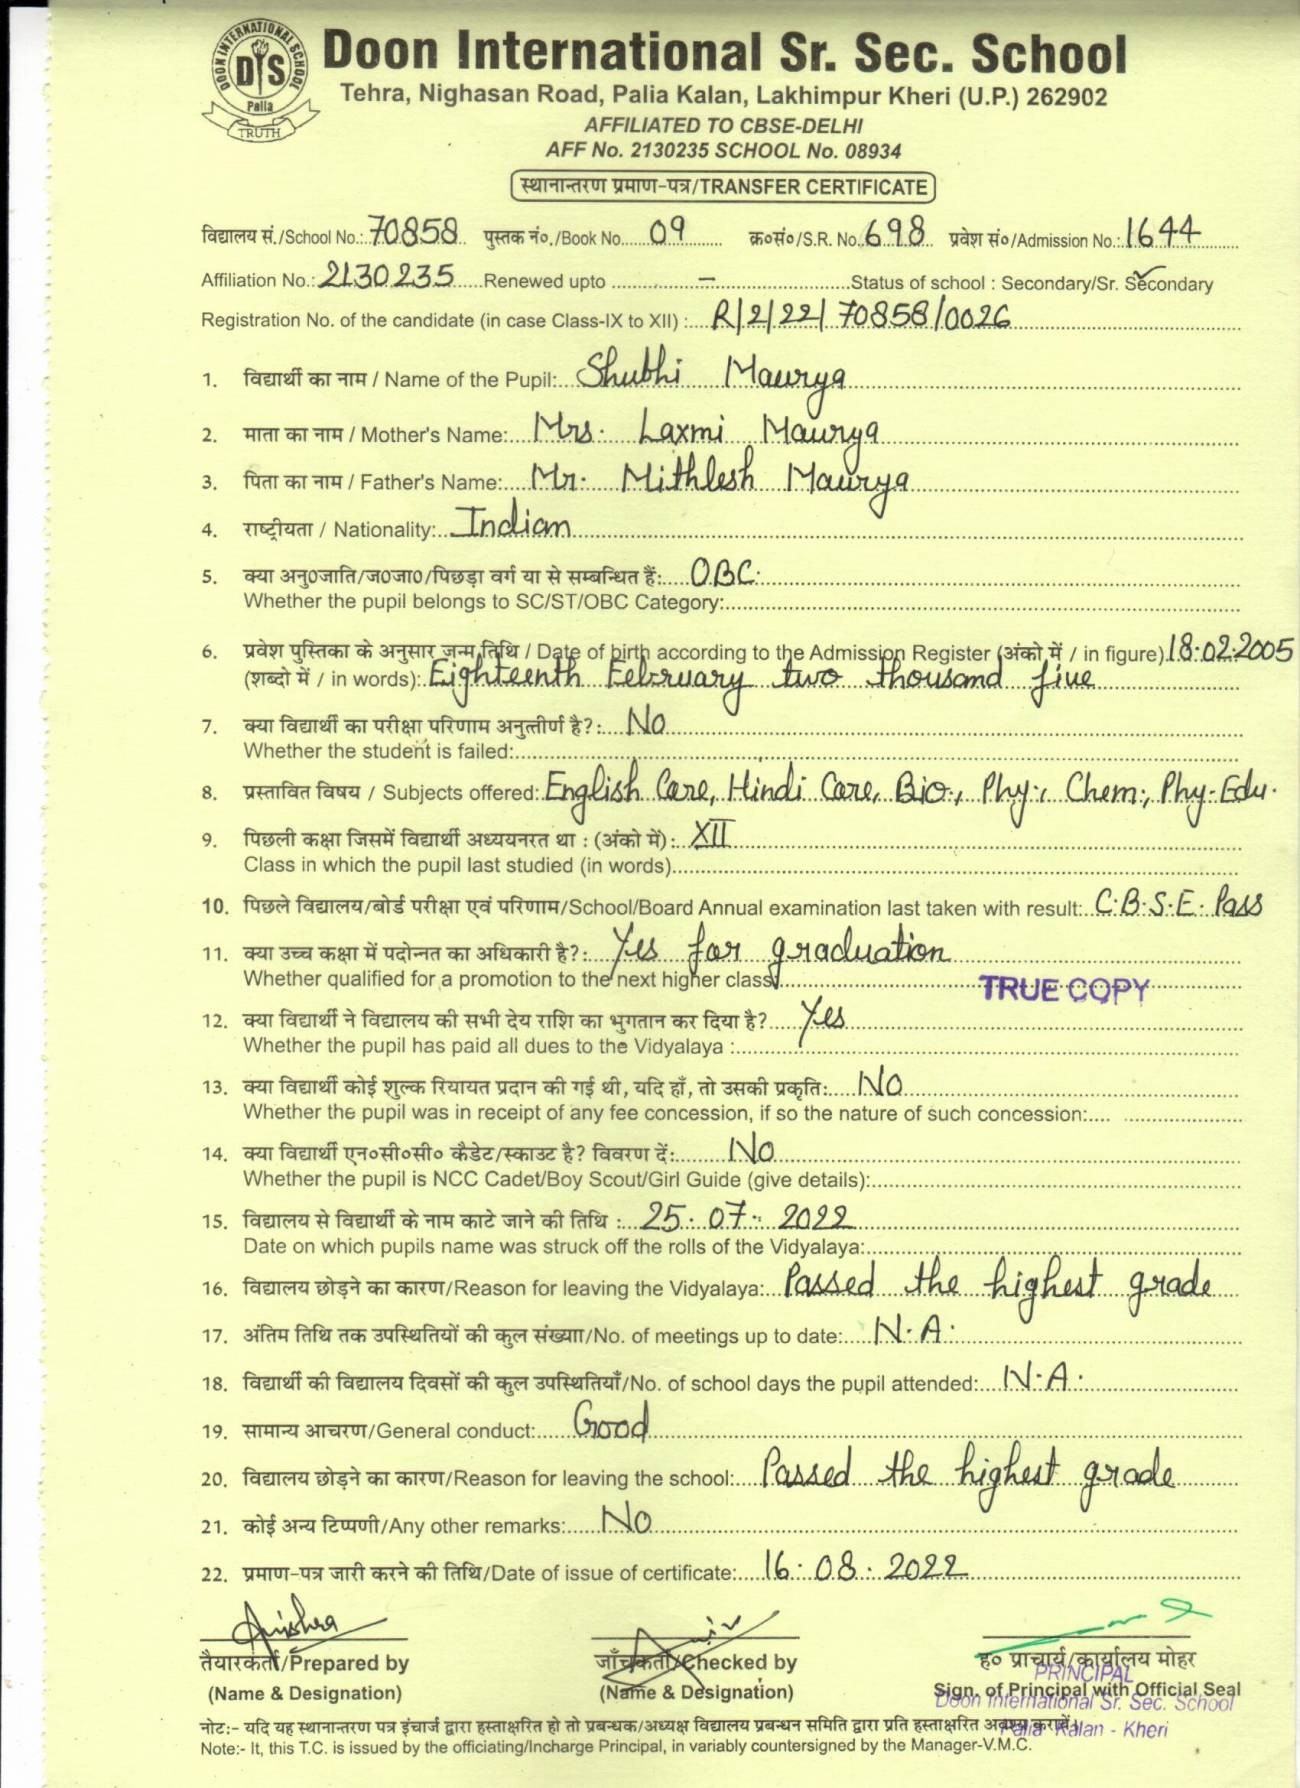 DOON INTERNATIONAL SCHOOL
DIS
Palia
TRUTH
Doon International Sr. Sec. School
Tehra, Nighasan Road, Palia Kalan, Lakhimpur Kheri (U.P.) 262902
AFFILIATED TO CBSE-DELHI
AFF No. 2130235 SCHOOL No. 08934
स्थानान्तरण प्रमाण-पत्र/TRANSFER CERTIFICATE
विद्यालय सं./School No.: 70858 पुस्तक नं०./Book No. 09 क्र०सं०/S.R. No. 698 प्रवेश सं०/Admission No.: 1644
Affiliation No.: 2130235 Renewed upto – Status of school : Secondary/Sr. Secondary
Registration No. of the candidate (in case Class-IX to XII) : R/2/22/70858/0026
1. विद्यार्थी का नाम / Name of the Pupil: Shubhi Maurya
2. माता का नाम / Mother's Name: Mrs. Laxmi Maurya
3. पिता का नाम / Father's Name: Mr. Mithlesh Maurya
4. राष्ट्रीयता / Nationality: Indian
5. क्या अनु०जाति/ज०जा०/पिछड़ा वर्ग या से सम्बन्धित हैं: OBC.
Whether the pupil belongs to SC/ST/OBC Category:
6. प्रवेश पुस्तिका के अनुसार जन्म तिथि / Date of birth according to the Admission Register (अंको में / in figure) 18.02.2005
(शब्दो में / in words): Eighteenth February two thousand five
7. क्या विद्यार्थी का परीक्षा परिणाम अनुत्तीर्ण है?: No
Whether the student is failed:
8. प्रस्तावित विषय / Subjects offered: English Core, Hindi Core, Bio., Phy., Chem., Phy. Edu.
9. पिछली कक्षा जिसमें विद्यार्थी अध्ययनरत था : (अंको में): XII
Class in which the pupil last studied (in words)
10. पिछले विद्यालय/बोर्ड परीक्षा एवं परिणाम/School/Board Annual examination last taken with result: C.B.S.E. Pass
11. क्या उच्च कक्षा में पदोन्नत का अधिकारी है?: Yes for graduation
Whether qualified for a promotion to the next higher class:
TRUE COPY
12. क्या विद्यार्थी ने विद्यालय की सभी देय राशि का भुगतान कर दिया है? Yes
Whether the pupil has paid all dues to the Vidyalaya :
13. क्या विद्यार्थी कोई शुल्क रियायत प्रदान की गई थी, यदि हाँ, तो उसकी प्रकृति: No
Whether the pupil was in receipt of any fee concession, if so the nature of such concession:
14. क्या विद्यार्थी एन०सी०सी० कैडेट/स्काउट है? विवरण दें: No
Whether the pupil is NCC Cadet/Boy Scout/Girl Guide (give details):
15. विद्यालय से विद्यार्थी के नाम काटे जाने की तिथि : 25.07.2022
Date on which pupils name was struck off the rolls of the Vidyalaya:
16. विद्यालय छोड़ने का कारण/Reason for leaving the Vidyalaya: Passed the highest grade
17. अंतिम तिथि तक उपस्थितियों की कुल संख्याा/No. of meetings up to date: N.A.
18. विद्यार्थी की विद्यालय दिवसों की कुल उपस्थितियाँ/No. of school days the pupil attended: N.A.
19. सामान्य आचरण/General conduct: Good
20. विद्यालय छोड़ने का कारण/Reason for leaving the school: Passed the highest grade
21. कोई अन्य टिप्पणी/Any other remarks: No
22. प्रमाण-पत्र जारी करने की तिथि/Date of issue of certificate: 16.08.2022
तैयारकर्ता/Prepared by जाँचकर्ता/Checked by ह० प्राचार्य/कार्यालय मोहर
PRINCIPAL
(Name & Designation) (Name & Designation) Sign. of Principal with Official Seal
Doon International Sr. Sec. School
Palia Kalan - Kheri
नोट:- यदि यह स्थानान्तरण पत्र इंचार्ज द्वारा हस्ताक्षरित हो तो प्रबन्धक/अध्यक्ष विद्यालय प्रबन्धन समिति द्वारा प्रति हस्ताक्षरित अवश्य करायें।
Note:- It, this T.C. is issued by the officiating/Incharge Principal, in variably countersigned by the Manager-V.M.C.